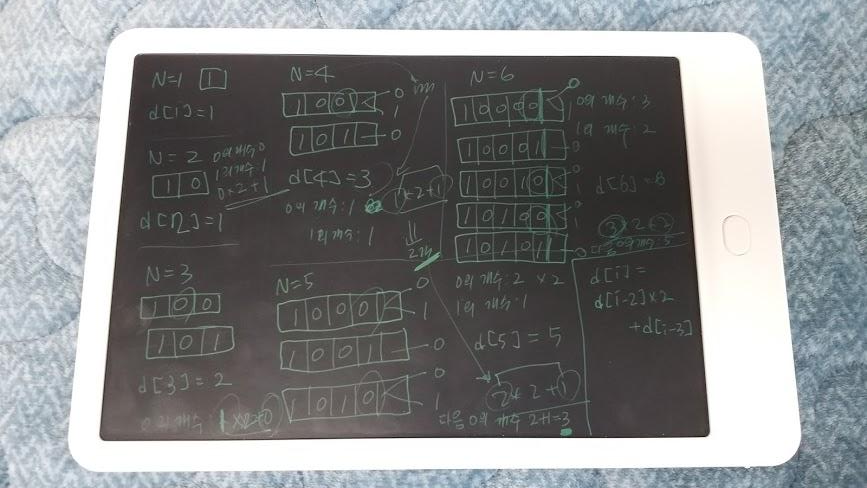 N=1 1
d[1]=1
N=2 0의 개수:0
1의 개수:1
1 0 0×2+1
d[2]=1
N=3
1 0 0
1 0 1
d[3]=2
0의 개수 1×2+0
N=4
1 0 0 0
1
1 0 1 0
d[4]=3
0의 개수:1 1×2+1
1의 개수:1
N=5
1 0 0 0 0
1
1 0 0 1 0
1 0 1 0 0
1
N=6
1 0 0 0 0 0
1
0의 개수:3
1의 개수:2
1 0 0 0 1 0
1 0 0 1 0 0
1
d[6]=8
1 0 1 0 0 0
1
3×2+2
1 0 1 0 1 0
다음 0의 개수:5
0의 개수:2 ×2
1의 개수:1
d[5]=5
2×2+1
다음 0의 개수 2+1=3
d[i]=
d[i-2]×2
+d[i-3]